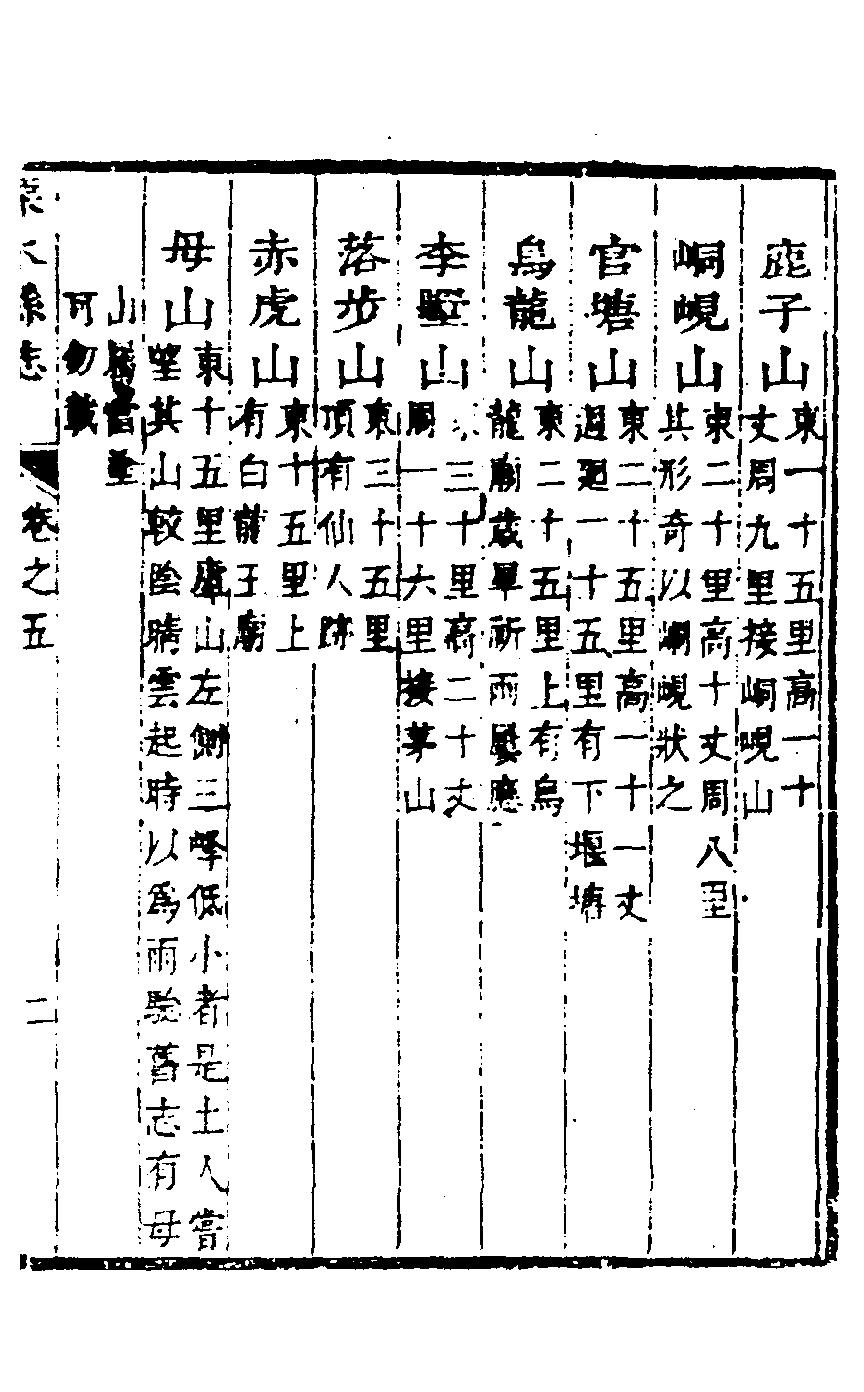 鹿子山東一十五里高一十
丈周九里接峒峴山
峒峴山東二十里高十丈周八里
其形奇以峒峴狀之
官塘山東二十五里高一十一丈
週廻一十五里有下堰塘
烏龍山東二十五里上有烏
龍廟歲旱祈雨屢應
李墅山東三十里高二十丈
周一十六里接茅山
落步山東三十五里
頂有仙人跡
赤虎山東十五里上
有白龍王廟
母山東十五里廬山左側三峰低小者是土人嘗
望其山較陰晴雲起時以爲雨驗舊志有母
山
可勿載
水縣志 卷之五 二